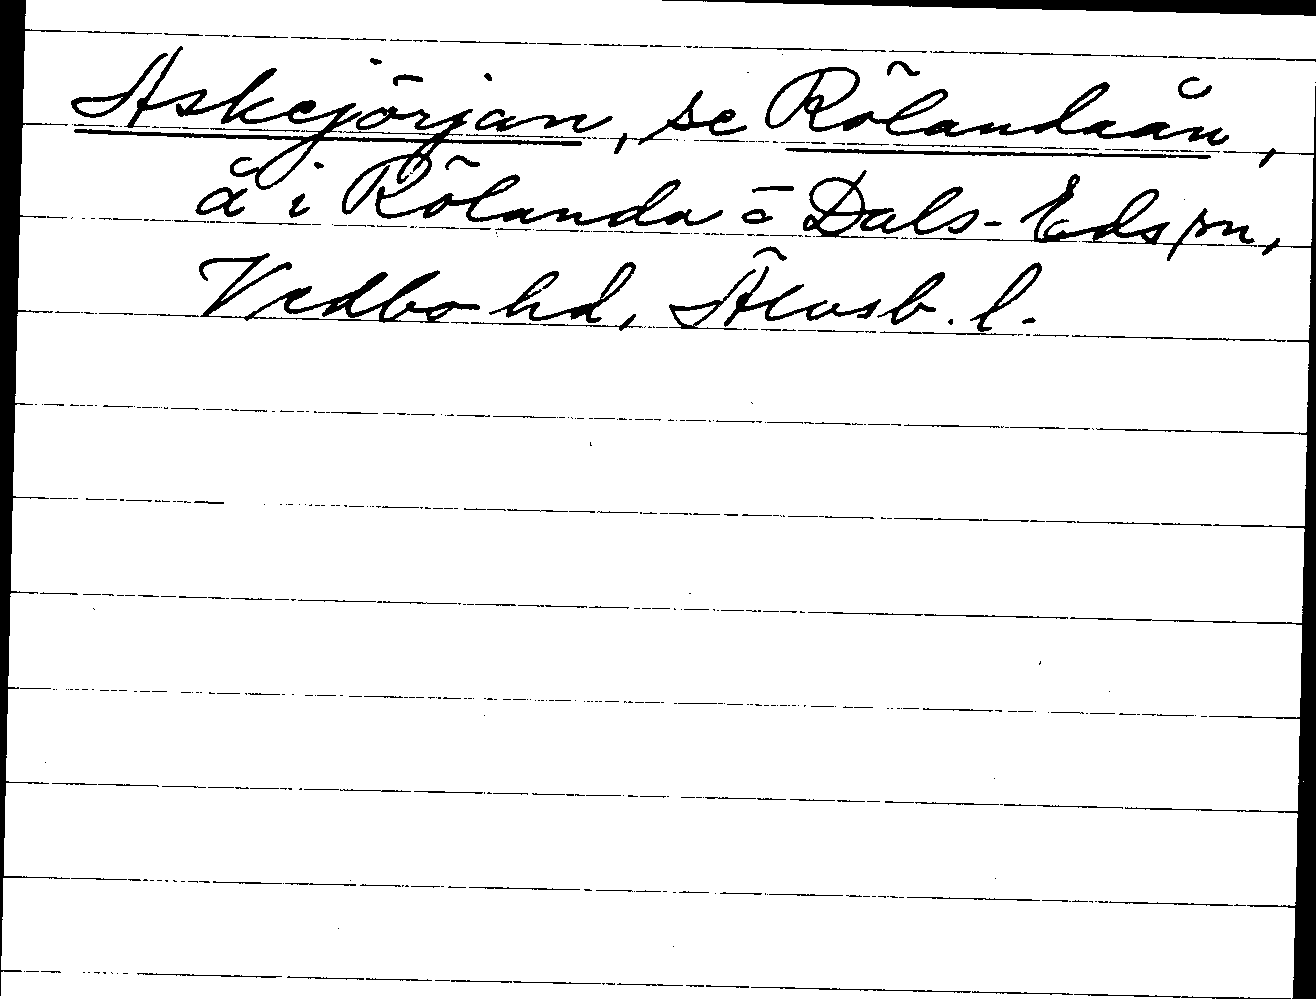 Askejörjan, se Rölandaån,
å i Rölanda o Dals-Eds sn,
Vedbo hd, Älvsb. l.